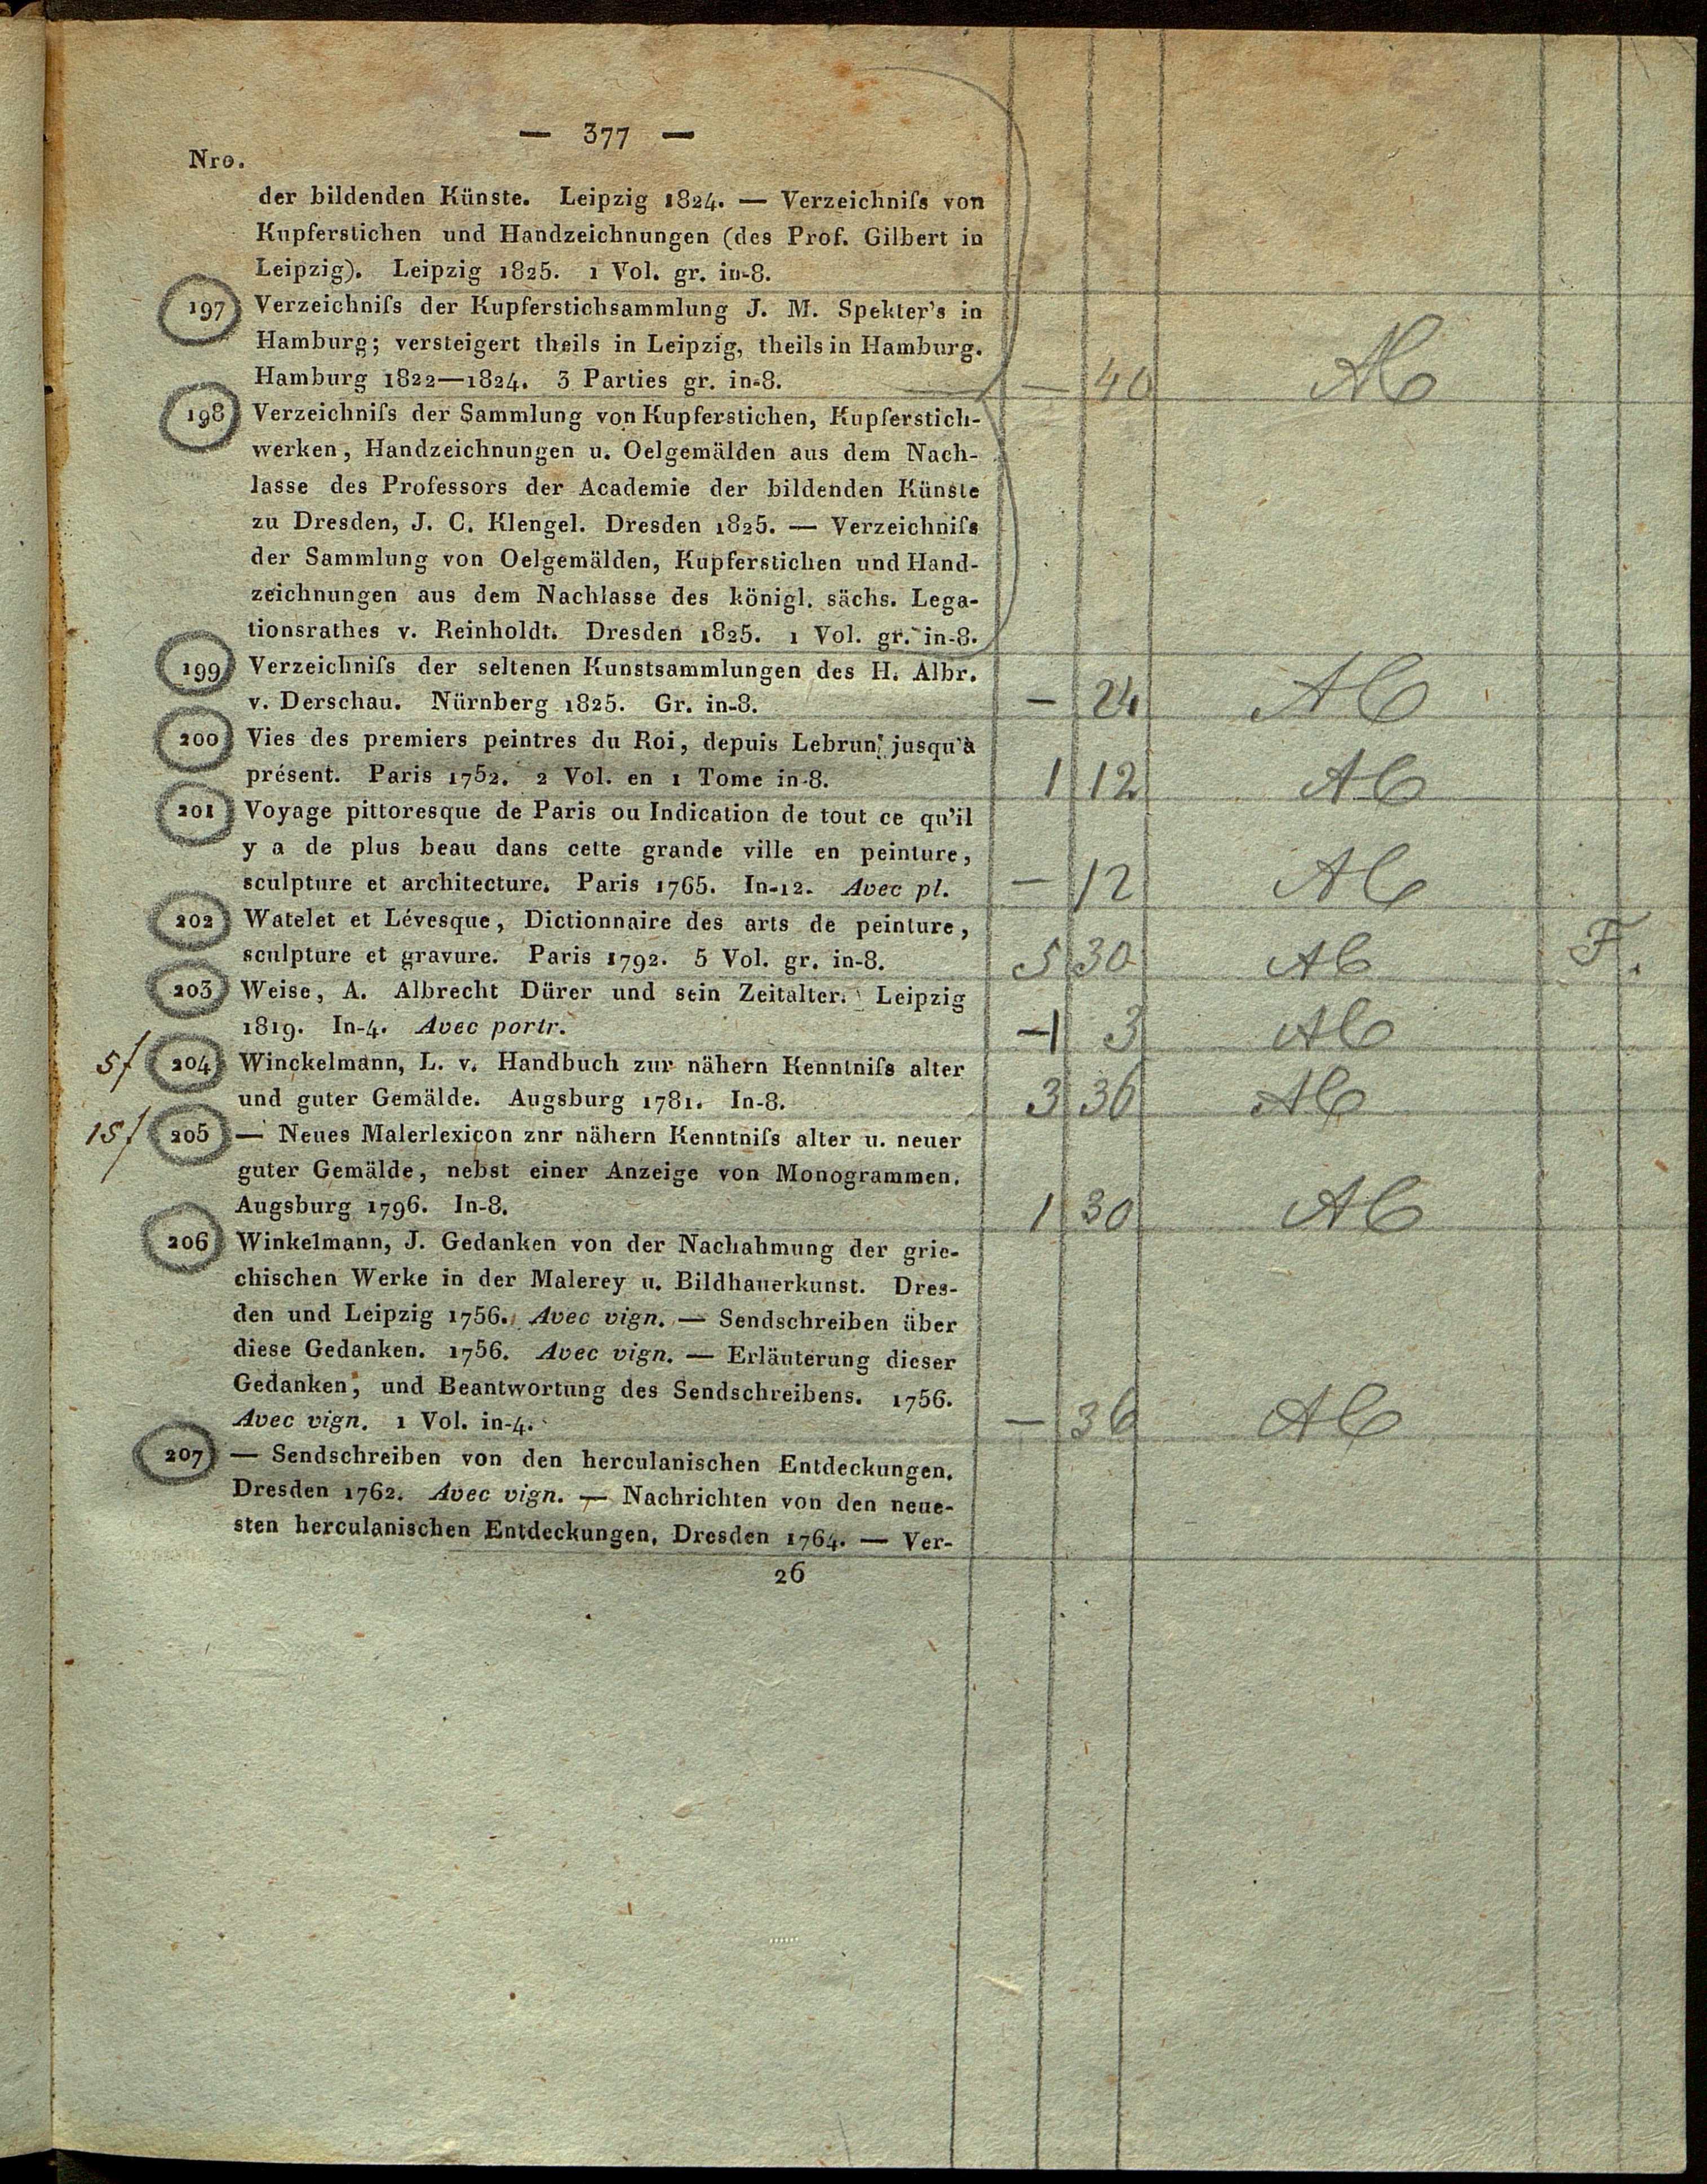 — 377 —
Nro.
der bildenden Künste. Leipzig 1824. — Verzeichniſs von
Kupferstichen und Handzeichnungen (des Prof. Gilbert in
Leipzig). Leipzig 1825. 1 Vol. gr. in-8.
197 Verzeichniſs der Kupferstichsammlung J. M. Spekter's in
Hamburg; versteigert theils in Leipzig, theils in Hamburg.
Hamburg 1822—1824. 3 Parties gr. in-8. — 40
198 Verzeichniſs der Sammlung von Kupferstichen, Kupferstich-
werken, Handzeichnungen u. Oelgemälden aus dem Nach-
lasse des Professors der Academie der bildenden Künste
zu Dresden, J. C. Klengel. Dresden 1825. — Verzeichniſs
der Sammlung von Oelgemälden, Kupferstichen und Hand-
zeichnungen aus dem Nachlasse des königl. sächs. Lega-
tionsrathes v. Reinholdt. Dresden 1825. 1 Vol. gr. in-8.
199 Verzeichniſs der seltenen Kunstsammlungen des H. Albr.
v. Derschau. Nürnberg 1825. Gr. in-8. — 24
200 Vies des premiers peintres du Roi, depuis Lebrun, jusqu'à
présent. Paris 1752. 2 Vol. en 1 Tome in-8. 1 12
201 Voyage pittoresque de Paris ou Indication de tout ce qu'il
y a de plus beau dans cette grande ville en peinture,
sculpture et architecture. Paris 1765. In-12. Avec pl. — 12
202 Watelet et Lévesque, Dictionnaire des arts de peinture,
sculpture et gravure. Paris 1792. 5 Vol. gr. in-8. 5 30 F.
203 Weise, A. Albrecht Dürer und sein Zeitalter. Leipzig
1819. In-4. Avec portr. — 3
5f 204 Winckelmann, L. v. Handbuch zur nähern Kenntniſs alter
und guter Gemälde. Augsburg 1781. In-8. 3 36
15f 205 — Neues Malerlexicon znr nähern Kenntniſs alter u. neuer
guter Gemälde, nebst einer Anzeige von Monogrammen.
Augsburg 1796. In-8. 1 30
206 Winkelmann, J. Gedanken von der Nachahmung der grie-
chischen Werke in der Malerey u. Bildhauerkunst. Dres-
den und Leipzig 1756. Avec vign. — Sendschreiben über
diese Gedanken. 1756. Avec vign. — Erläuterung dieser
Gedanken, und Beantwortung des Sendschreibens. 1756.
Avec vign. 1 Vol. in-4. — 36
207 — Sendschreiben von den herculanischen Entdeckungen.
Dresden 1762. Avec vign. — Nachrichten von den neue-
sten herculanischen Entdeckungen, Dresden 1764. — Ver-
26